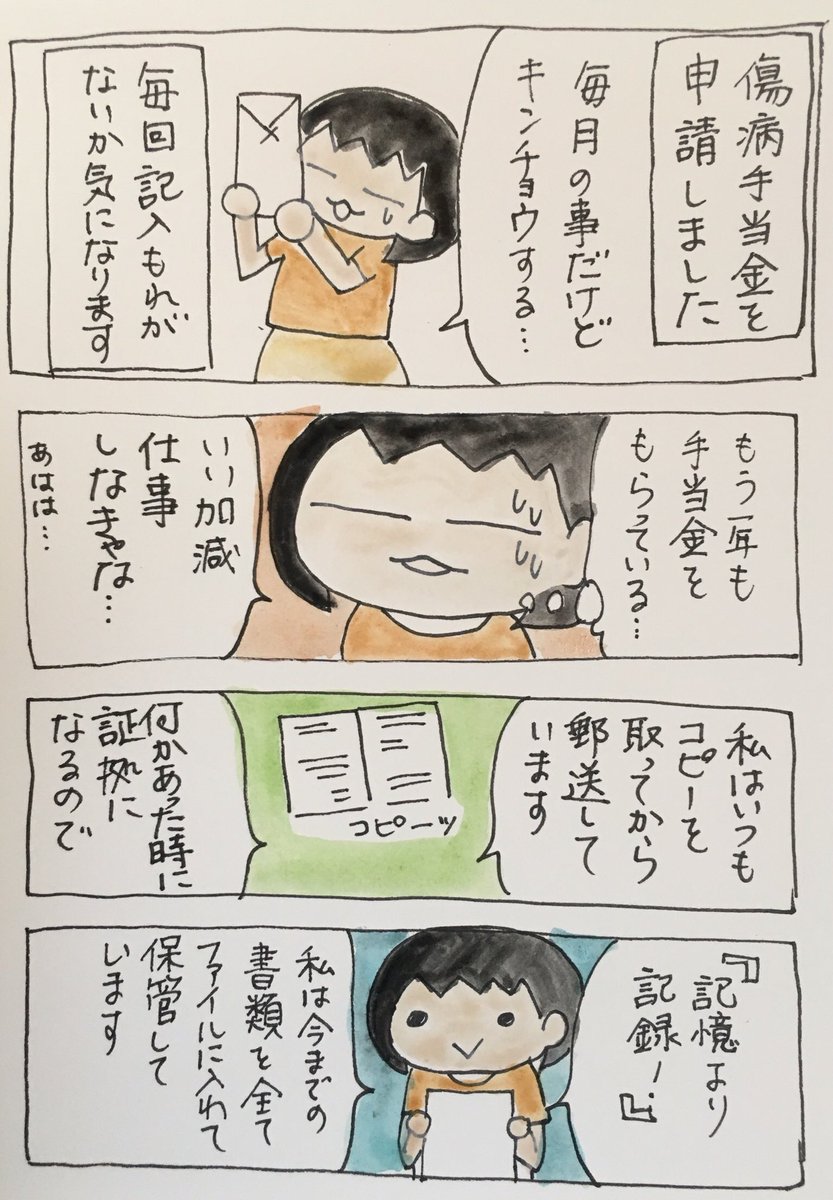 傷病手当金を
申請しました
毎月の事だけど
キンチョウする…
毎回記入もれが
ないか気になります
もう一年も
手当金を
もらっている…
いい加減
仕事
しなきゃな…
あはは…
私はいつも
コピーを
取ってから
郵送して
います
コピーッ
何かあった時に
証拠に
なるので
『記憶より
記録!』
私は今までの
書類を全て
ファイルに入れて
保管して
います